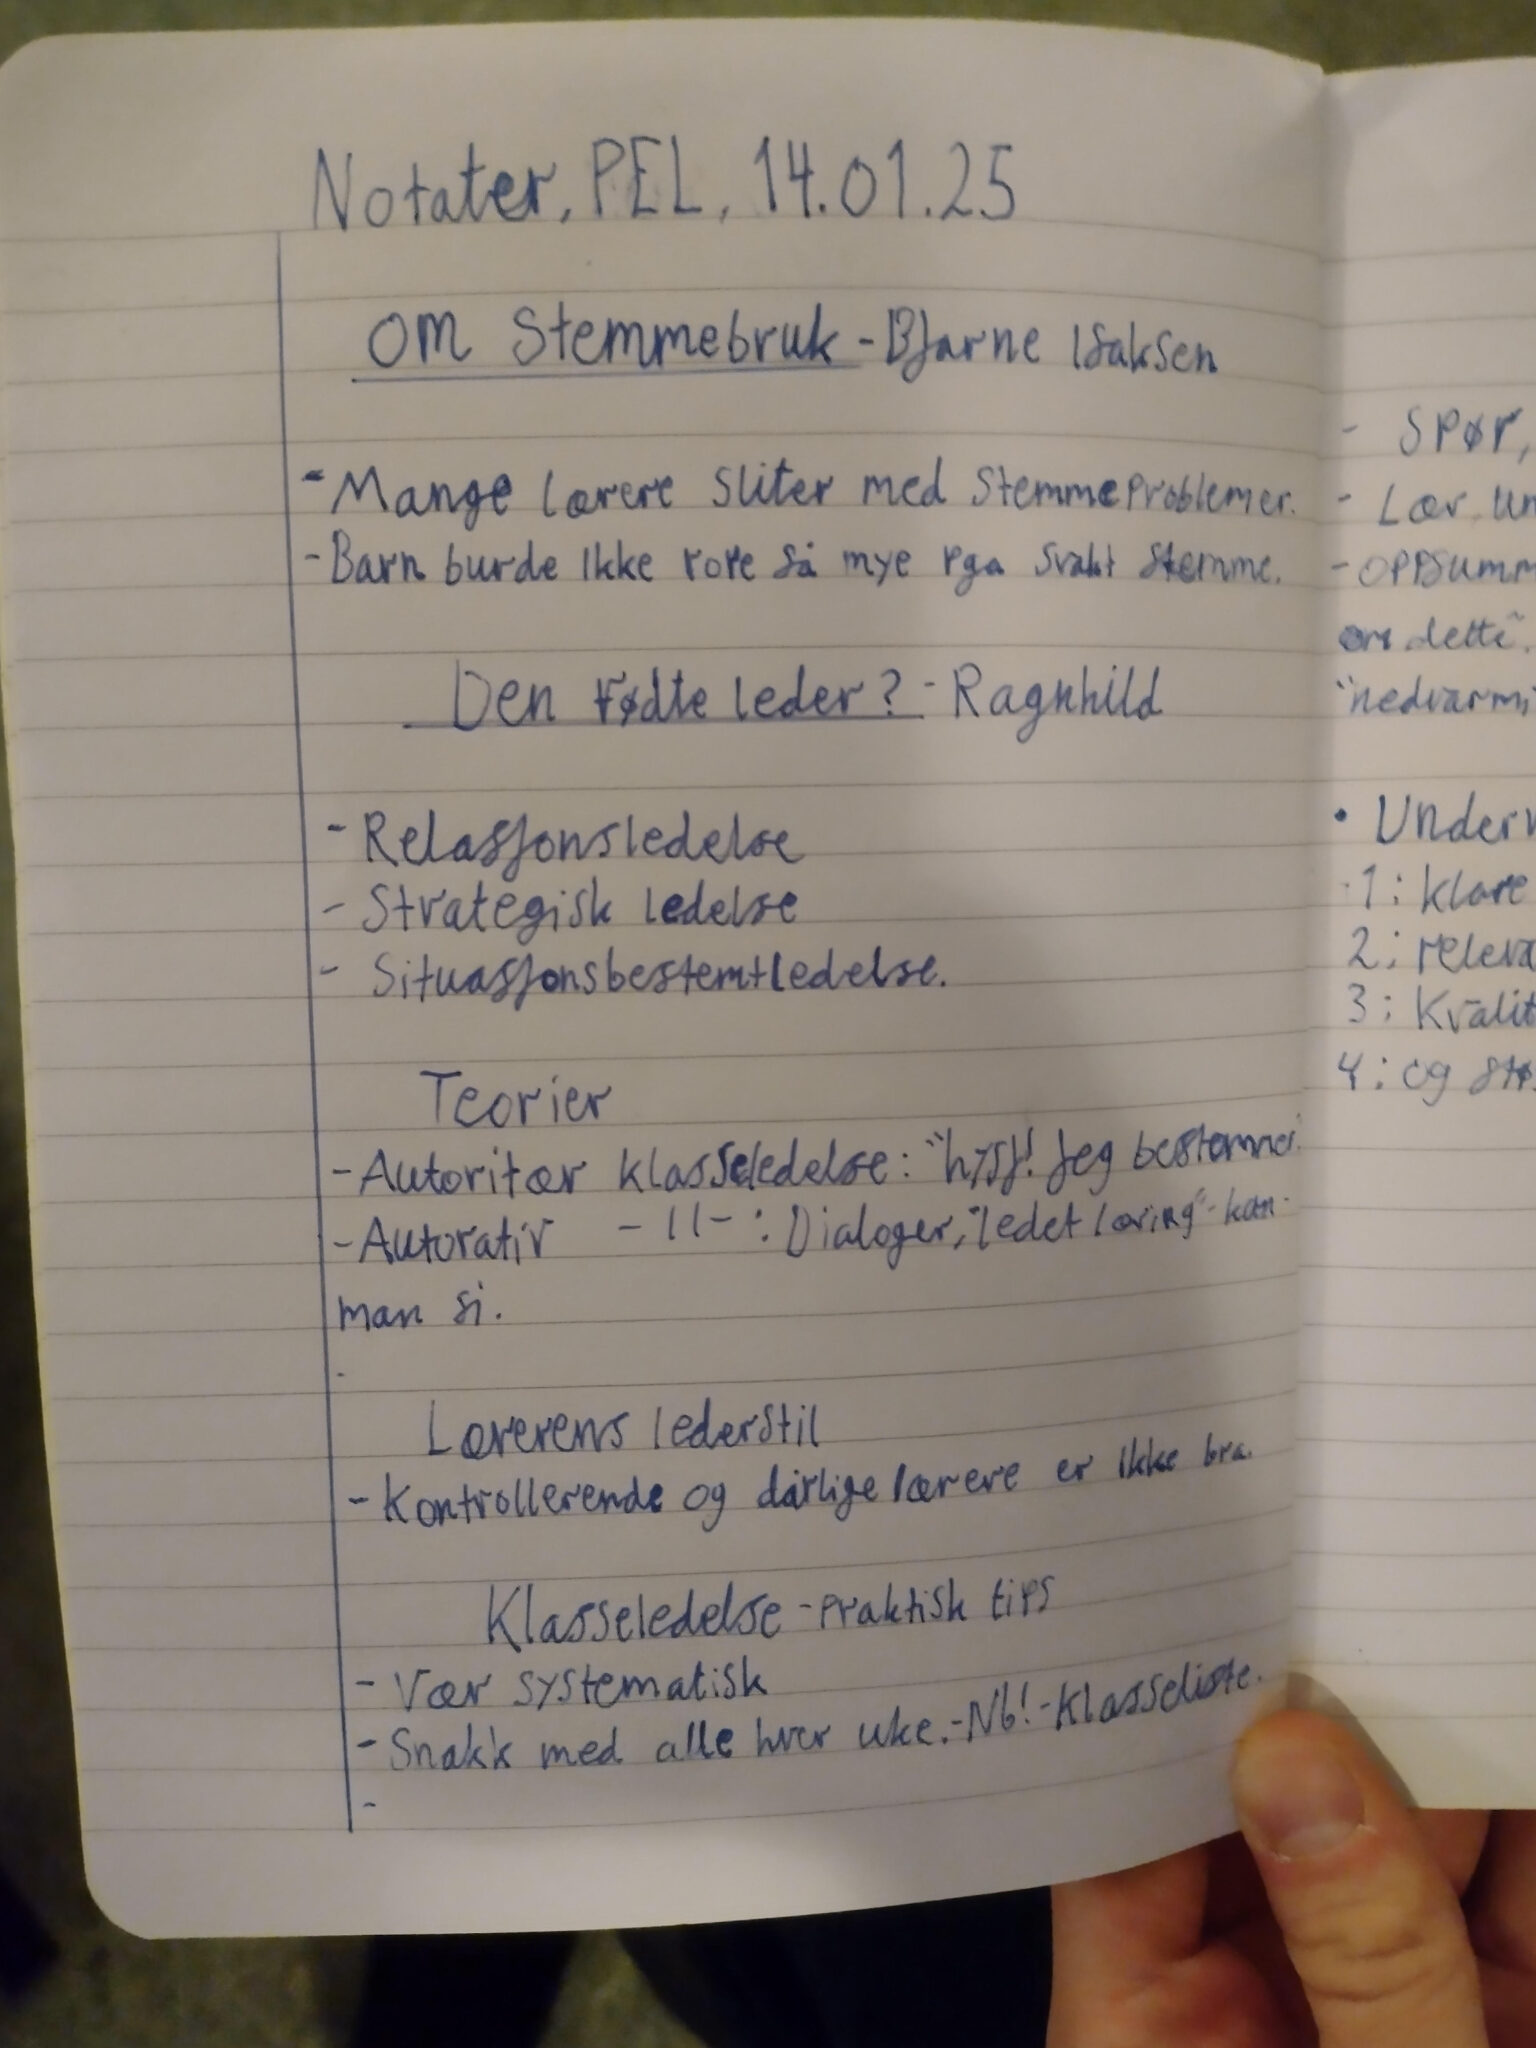 Notater, PEL, 14.01.25
Om Stemmebruk - Bjarne Isaksen
- Mange lærere sliter med stemmeproblemer.
- Barn burde ikke rope så mye pga svakt stemme.
Den fødte leder? - Ragnhild
- Relasjonsledelse
- Strategisk ledelse
- Situasjonsbestemtledelse.
Teorier
- Autoritær klasseledelse: "hysj! Jeg bestemmer
- Autorativ -11- : Dialoger, "ledet læring" - kan
man si.
Lærerens lederstil
- Kontrollerende og dårlige lærere er ikke bra.
Klasseledelse - praktisk tips
- Vær systematisk
- Snakk med alle hver uke. - Nb! - Klasseliste.
-
- Spør,
- Lær, un
- oppsumm
om dette".
"nedvarmi
• Underv
1: klare
2: releva
3: Kvalit
4: og stø